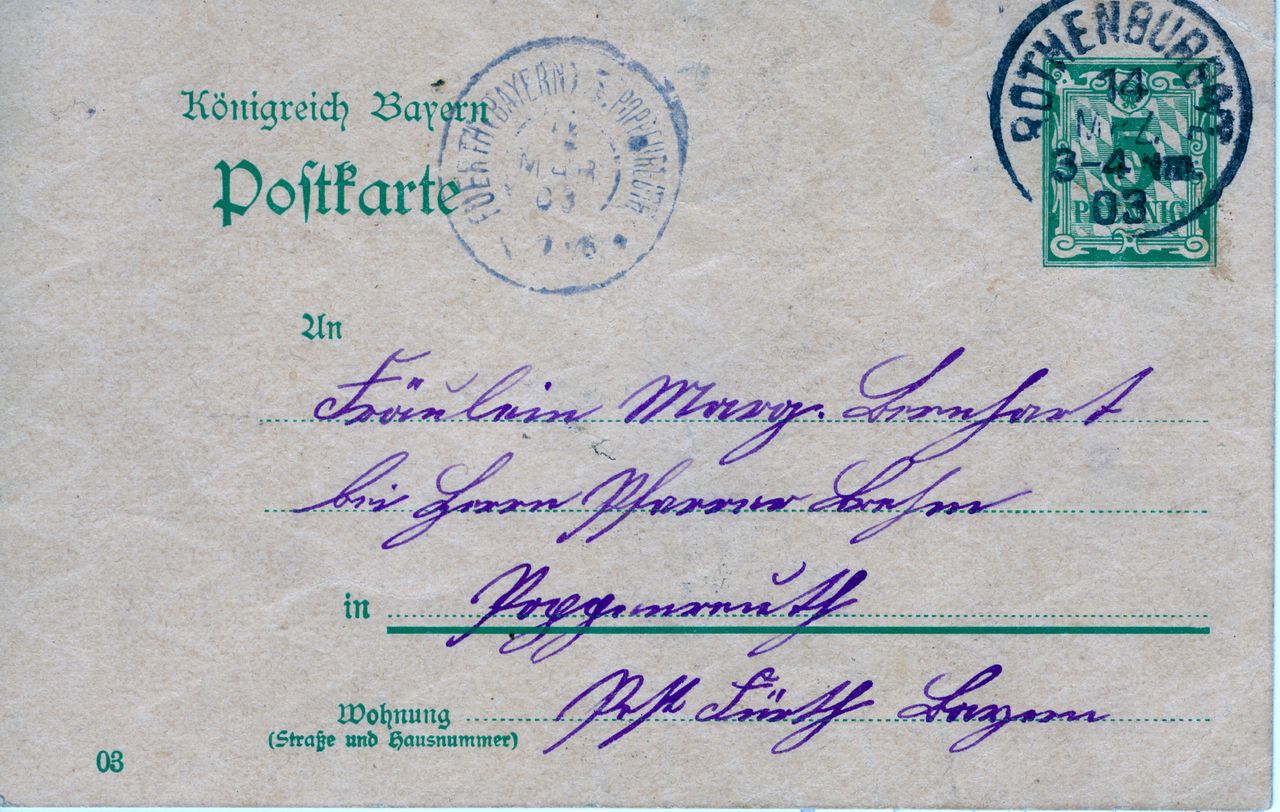 Königreich Bayern
Postkarte
FUERTH (BAYERN)
MER
03
ROTHENBURG
14
MRZ.
3-4 Nm.
03
5
PFENNIG
An
Fräulein Marg. Bernhart
bei Herrn Pfarrer Brehm
in Poppenreuth
Wohnung Post Fürth Bayern
(Straße und Hausnummer)
03